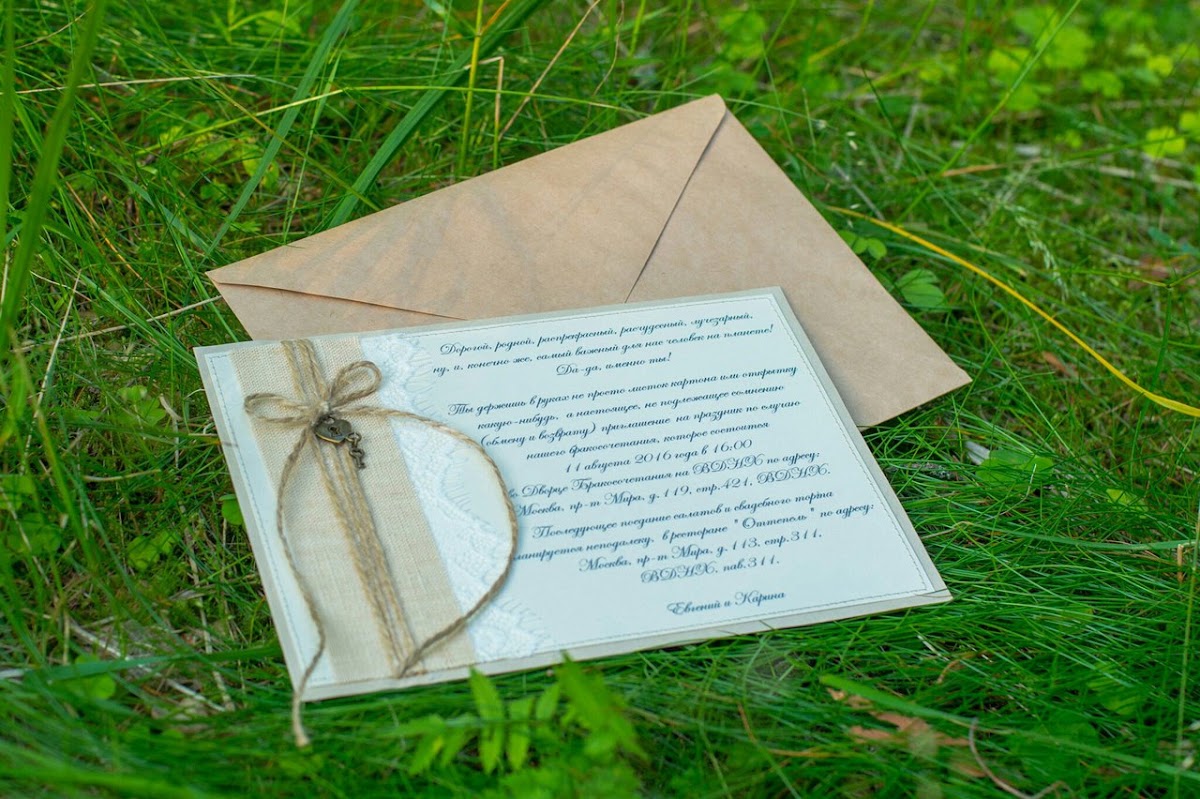 Дорогой, родной, распрекрасный, расчудесный, лучезарный,
ну, и, конечно же, самый важный для нас человек на планете!
Да-да, именно ты!
Ты держишь в руках не просто листок картона или открытку
какую-нибудь, а настоящее, не подлежащее сомнению
(обмену и возврату) приглашение на праздник по случаю
нашего бракосочетания, которое состоится
11 августа 2016 года в 16:00
во Дворце Бракосочетания на ВДНХ по адресу:
Москва, пр-т Мира, д.119, стр.421, ВДНХ.
Последующее поедание салатов и свадебного торта
планируется неподалеку, в ресторане "Оттепель" по адресу:
Москва, пр-т Мира, д.113, стр.311,
ВДНХ, пав.311.
Евгений и Карина